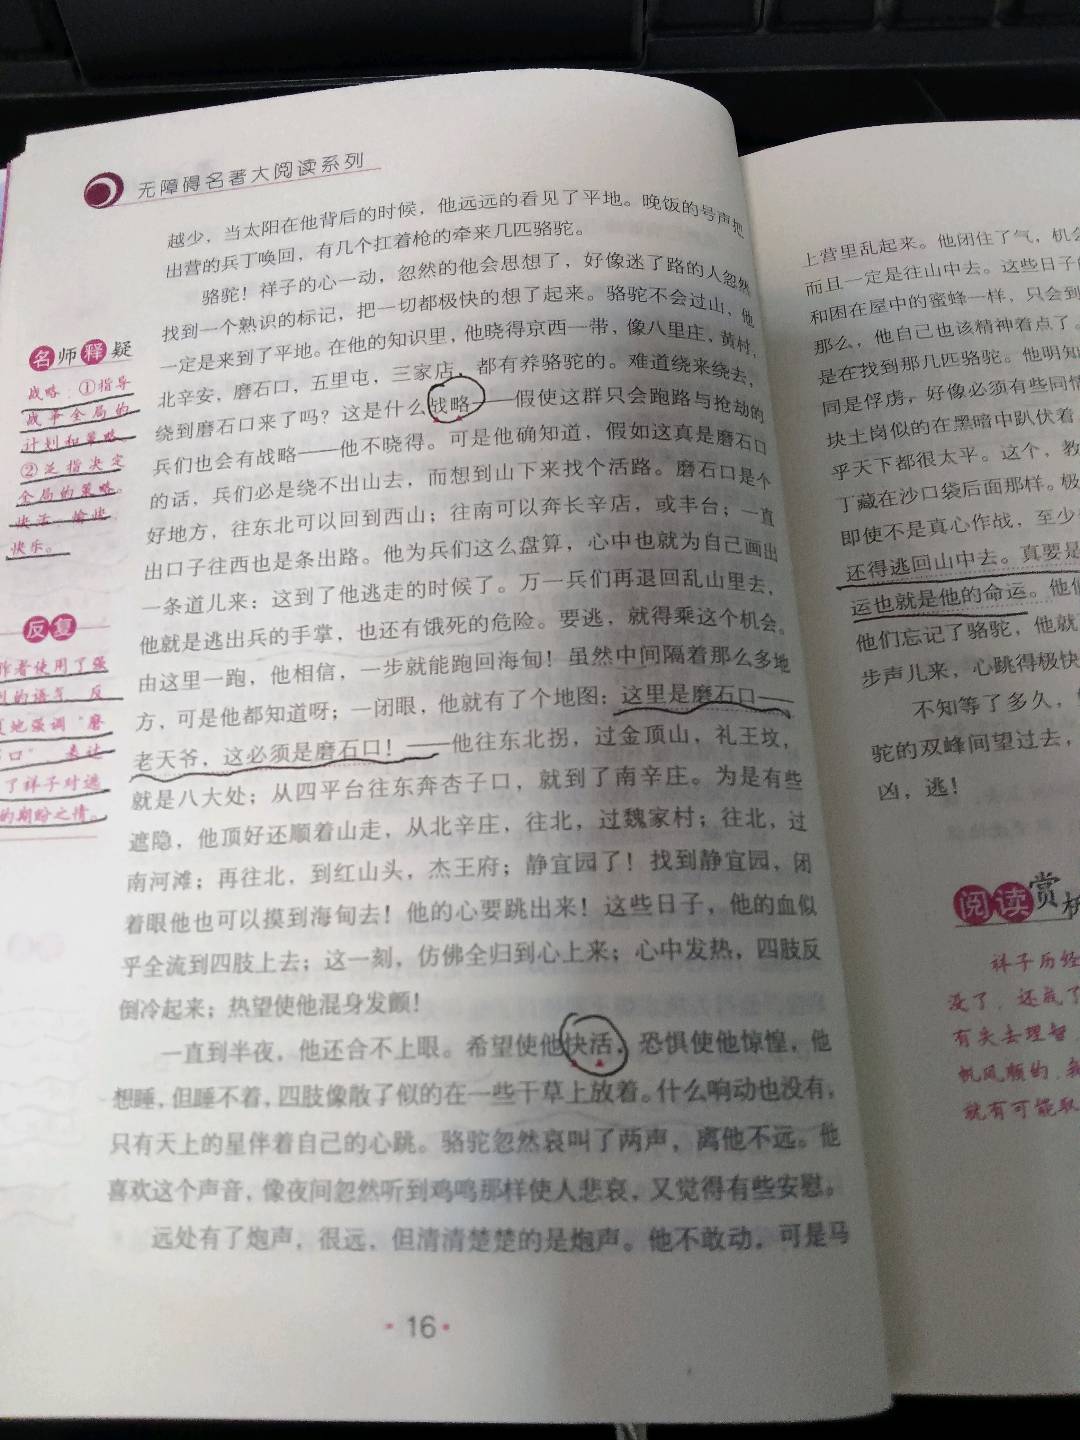 无障碍名著大阅读系列
越少,当太阳在他背后的时候,他远远的看见了平地。晚饭的号声把
出营的兵丁唤回,有几个扛着枪的牵来几匹骆驼。
骆驼!祥子的心一动,忽然的他会思想了,好像迷了路的人忽然
找到一个熟识的标记,把一切都极快的想了起来。骆驼不会过山,他
一定是来到了平地。在他的知识里,他晓得京西一带,像八里庄,黄村,
北辛安,磨石口,五里屯,三家店,都有养骆驼的。难道绕来绕去,
绕到磨石口来了吗?这是什么战略——假使这群只会跑路与抢劫的
兵们也会有战略——他不晓得。可是他确知道,假如这真是磨石口
的话,兵们必是绕不出山去,而想到山下来找个活路。磨石口是个
好地方,往东北可以回到西山;往南可以奔长辛店,或丰台;一直
出口子往西也是条出路。他为兵们这么盘算,心中也就为自己画出
一条道儿来:这到了他逃走的时候了。万一兵们再退回乱山里去,
他就是逃出兵的手掌,也还有饿死的危险。要逃,就得乘这个机会。
由这里一跑,他相信,一步就能跑回海甸!虽然中间隔着那么多地
方,可是他都知道呀;一闭眼,他就有了个地图:这里是磨石口——
老天爷,这必须是磨石口!——他往东北拐,过金顶山,礼王坟,
就是八大处;从四平台往东奔杏子口,就到了南辛庄。为是有些
遮隐,他顶好还顺着山走,从北辛庄,往北,过魏家村;往北,过
南河滩;再往北,到红山头,杰王府;静宜园了!找到静宜园,闭
着眼他也可以摸到海甸去!他的心要跳出来!这些日子,他的血似
乎全流到四肢上去;这一刻,仿佛全归到心上来;心中发热,四肢反
倒冷起来;热望使他混身发颤!
一直到半夜,他还合不上眼。希望使他快活,恐惧使他惊惶,他
想睡,但睡不着,四肢像散了似的在一些干草上放着。什么响动也没有,
只有天上的星伴着自己的心跳。骆驼忽然哀叫了两声,离他不远。他
喜欢这个声音,像夜间忽然听到鸡鸣那样使人悲哀,又觉得有些安慰。
远处有了炮声,很远,但清清楚楚的是炮声。他不敢动,可是马
16
名师释疑
战略:①指导
战争全局的
计划和策略。
②泛指决定
全局的策略。
快活:愉快,
快乐。
反复
作者使用了强
烈的语气,反
复地强调“磨
石口”,表达
了祥子对逃
的期盼之情。
上营里乱起来。他闭住了气,机会
而且一定是往山中去。这些日子的
和困在屋中的蜜蜂一样,只会到
那么,他自己也该精神着点了。
是在找到那几匹骆驼。他明知
同是俘虏,好像必须有些同情
块土岗似的在黑暗中趴伏着
乎天下都很太平。这个,教
丁藏在沙口袋后面那样。极
即使不是真心作战,至少
还得逃回山中去。真要是
运也就是他的命运。他
他们忘记了骆驼,他就
步声儿来,心跳得极快
不知等了多久,
驼的双峰间望过去,
凶,逃!
阅读赏析
祥子历经
没了,还成了
有失去理智
帆风顺的,
就有可能取